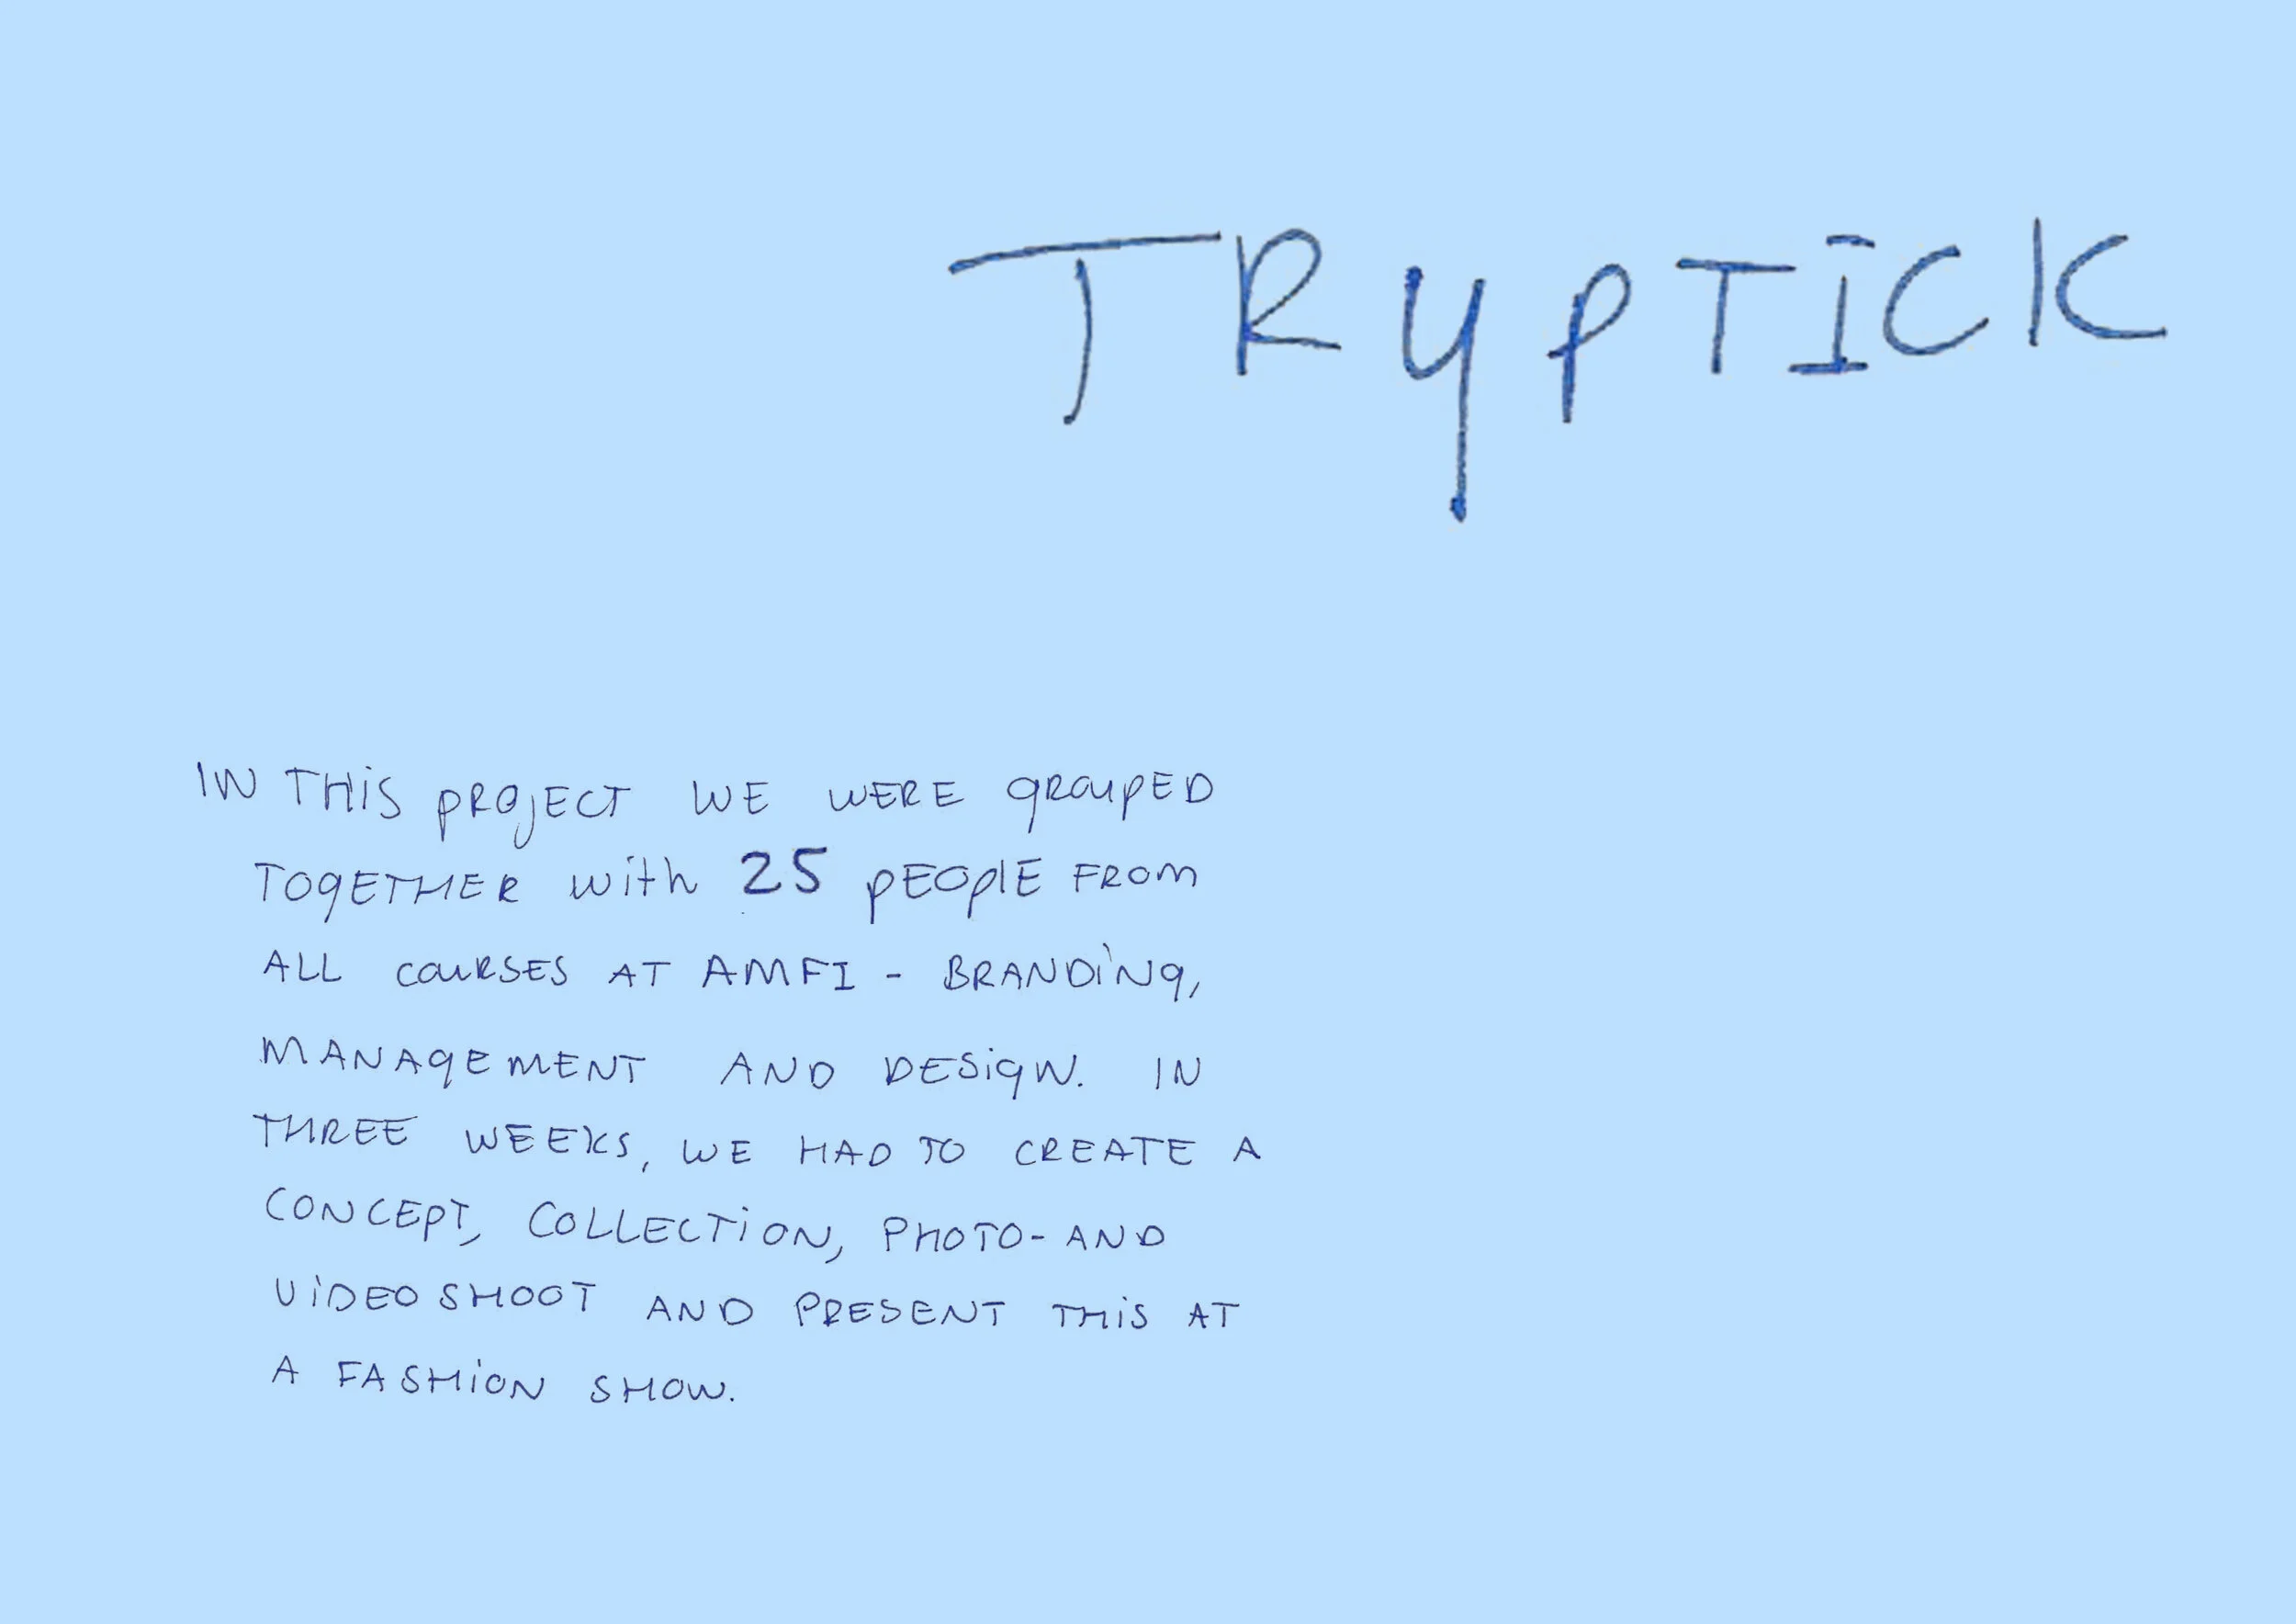 TRYPTICK
IN THIS PROJECT WE WERE GROUPED
TOGETHER WITH 25 PEOPLE FROM
ALL COURSES AT AMFI - BRANDING,
MANAGEMENT AND DESIGN. IN
THREE WEEKS, WE HAD TO CREATE A
CONCEPT, COLLECTION, PHOTO- AND
VIDEOSHOOT AND PRESENT THIS AT
A FASHION SHOW.